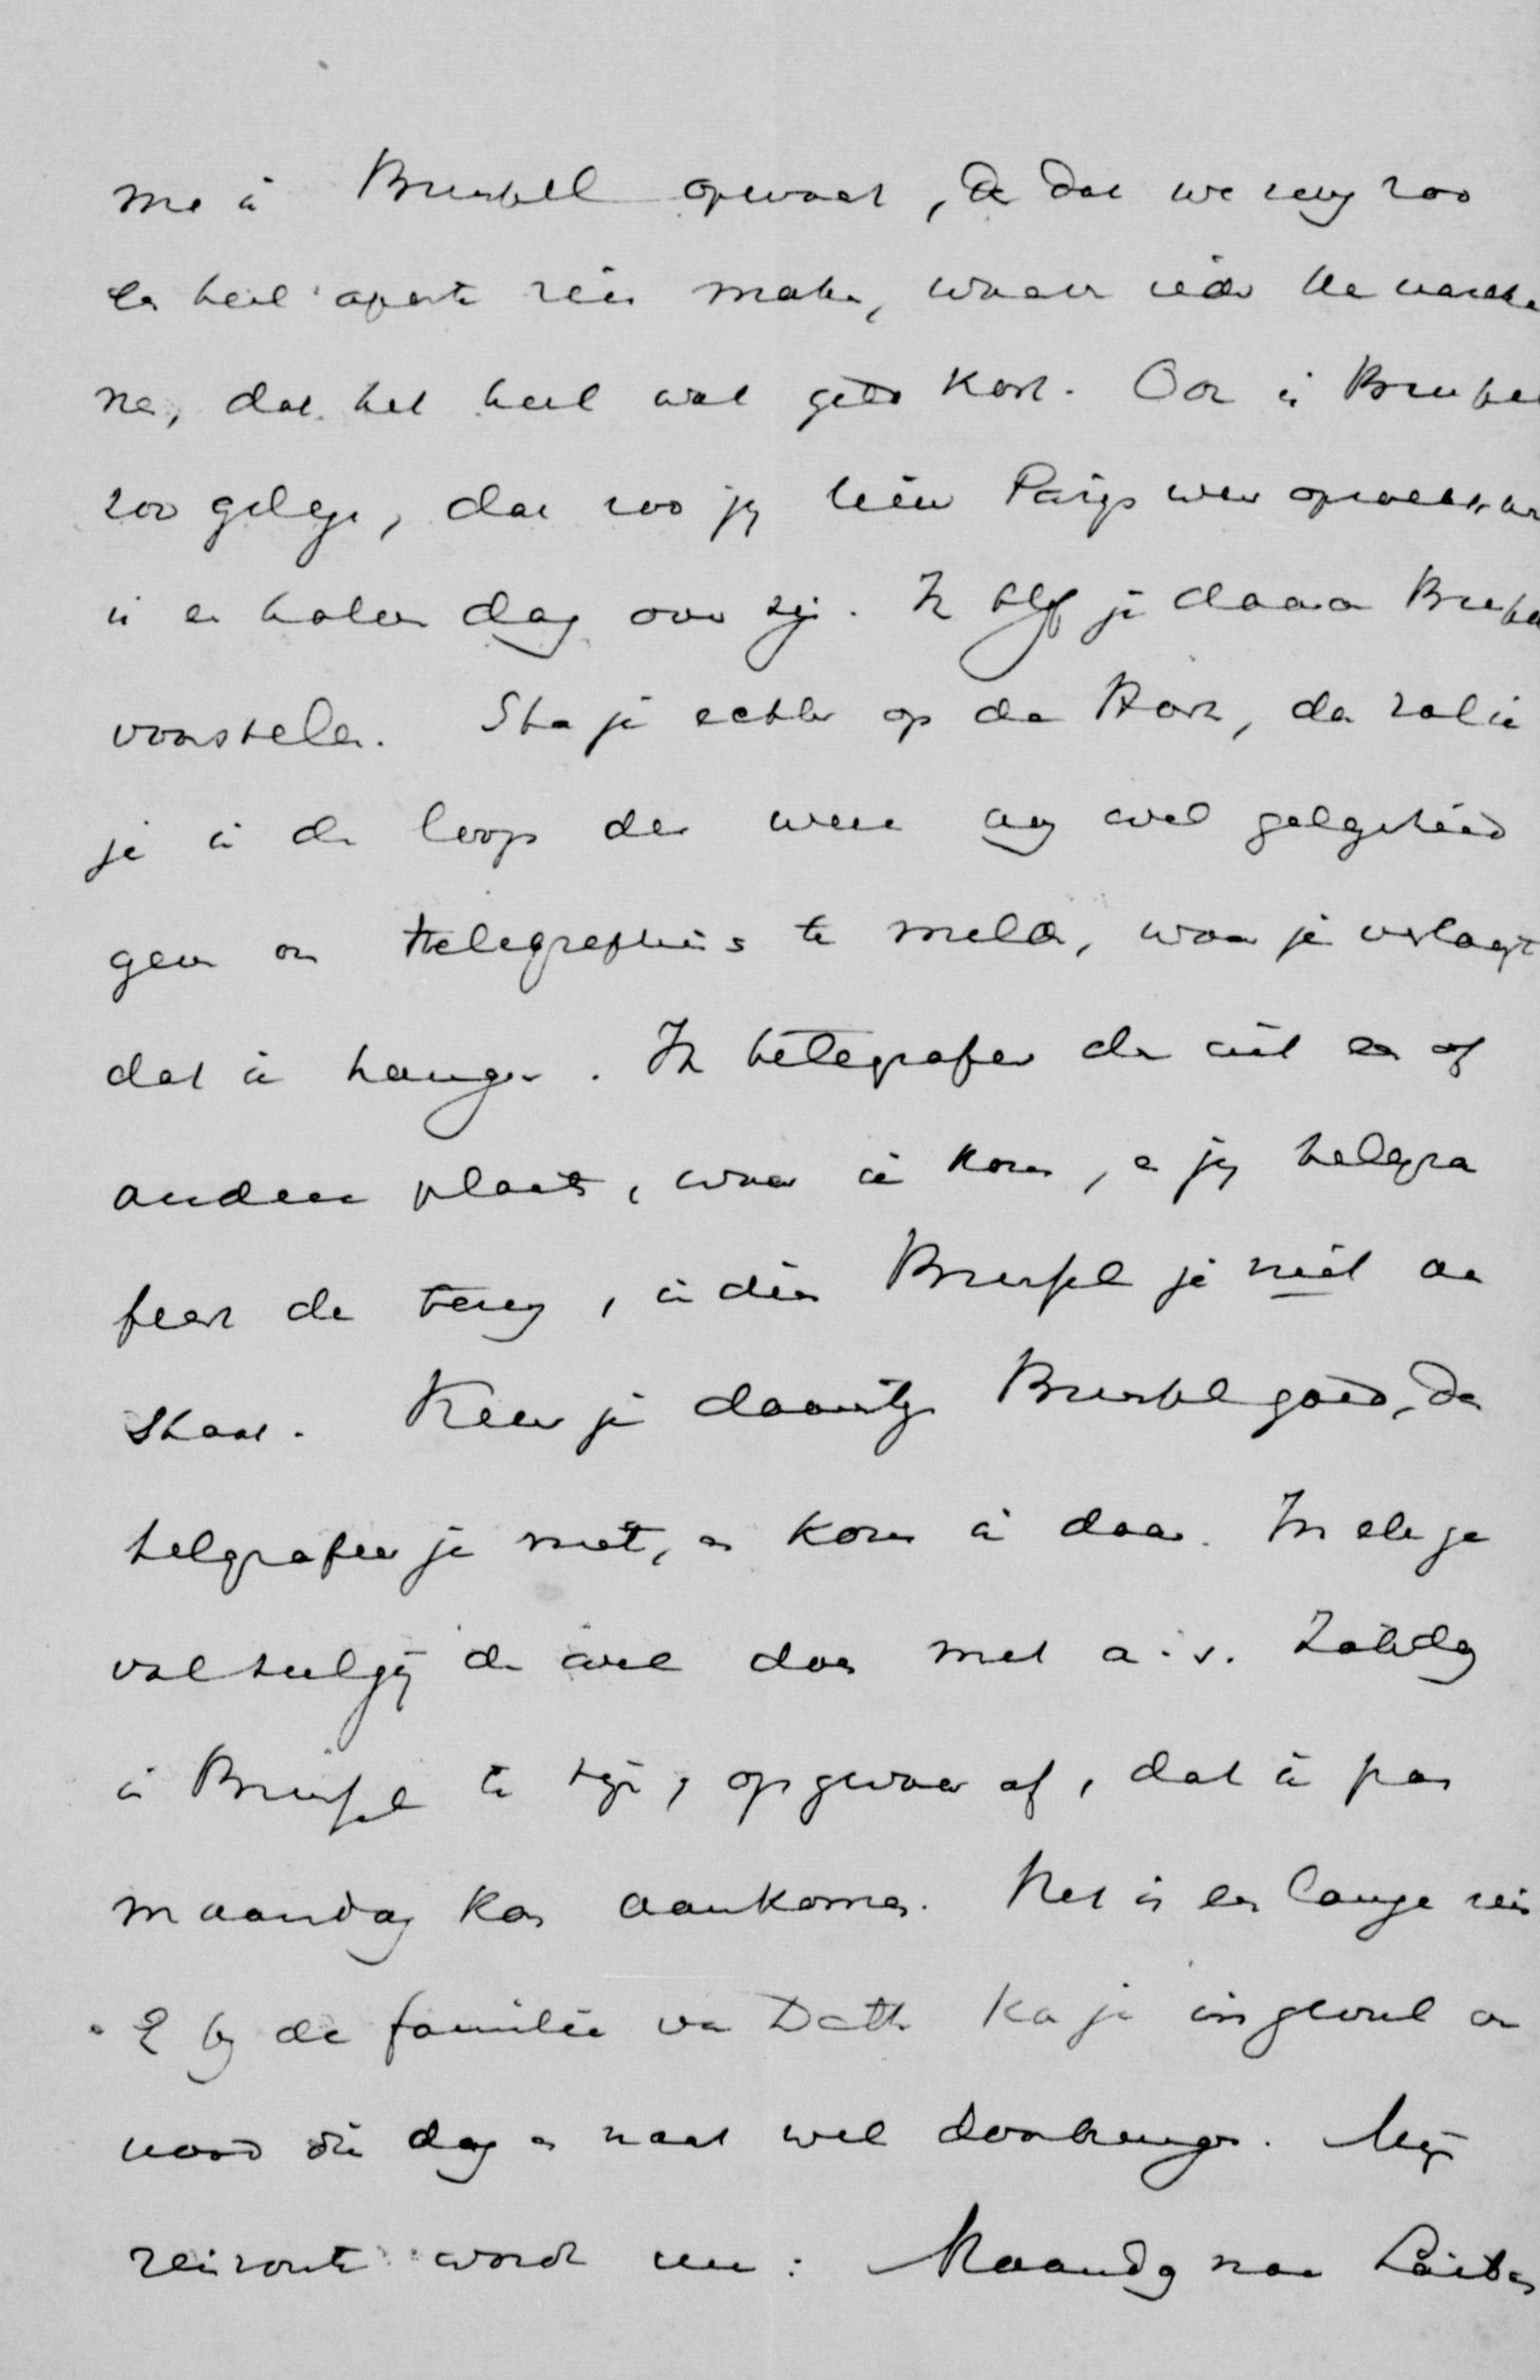 me in Brussel opwacht, en dat we terug zoo
een heel aparte reis maken, waar
na, dat het heel wat geld kost. Ook is Brussel
zoo gelegen, dat zoo jij Parijs weer
is een halve dag over zijn. Ik blijf je daarom Brussel
voorstellen. Sta je echter op den Harz, dan zal ik
je in de loop der week nog wel gelegenheid
geven om telegrafies te melden, waar je verlangt
dat ik hange. Ik telegrafeer dan uit een of
andere plaats, waar ik kom, en jij telegra
feert dan terug, indien Brussel je niet aan
staat. Keur je daarentegen Brussel goed, dan
telegrafeer je niet, en kom ik daar. In elk ge
val zul jij dan wel doen met a.s. Zondag
in Brussel te zijn, op gevaar af, dat ik pas
maandag kan aankomen. Het is een lange reis
En bij de familie van Dath kan je in geval van
nood die dag en nacht wel doorbrengen. Mijn
reisroute wordt nu: Maandag naar